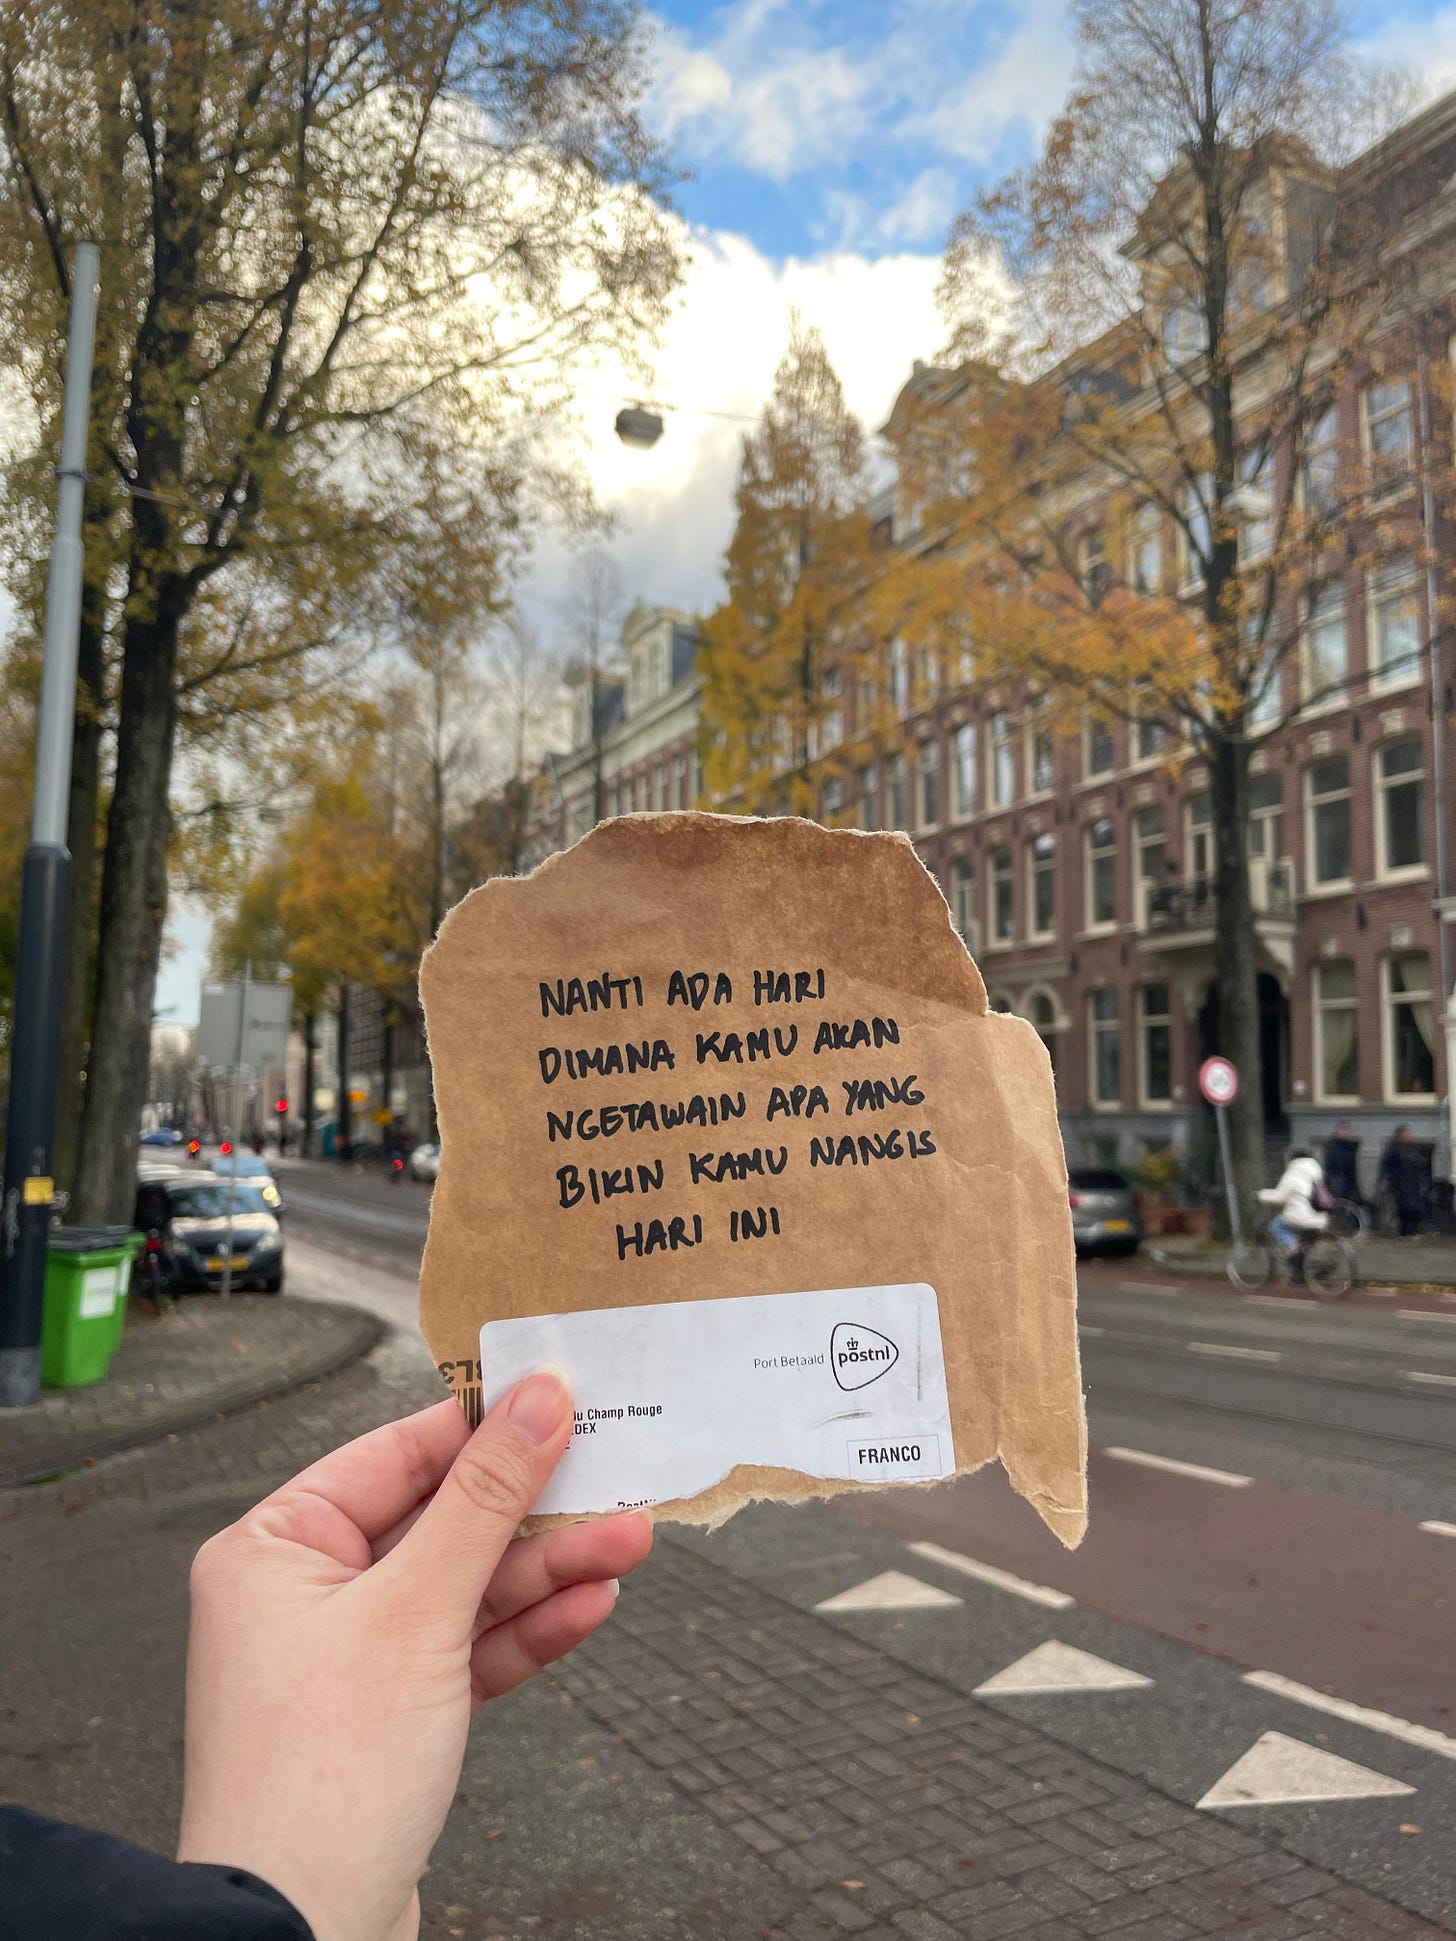 NANTI ADA HARI
DIMANA KAMU AKAN
NGETAWAIN APA YANG
BIKIN KAMU NANGIS
HARI INI
Port Betaald postnl
Champ Rouge
FRANCO